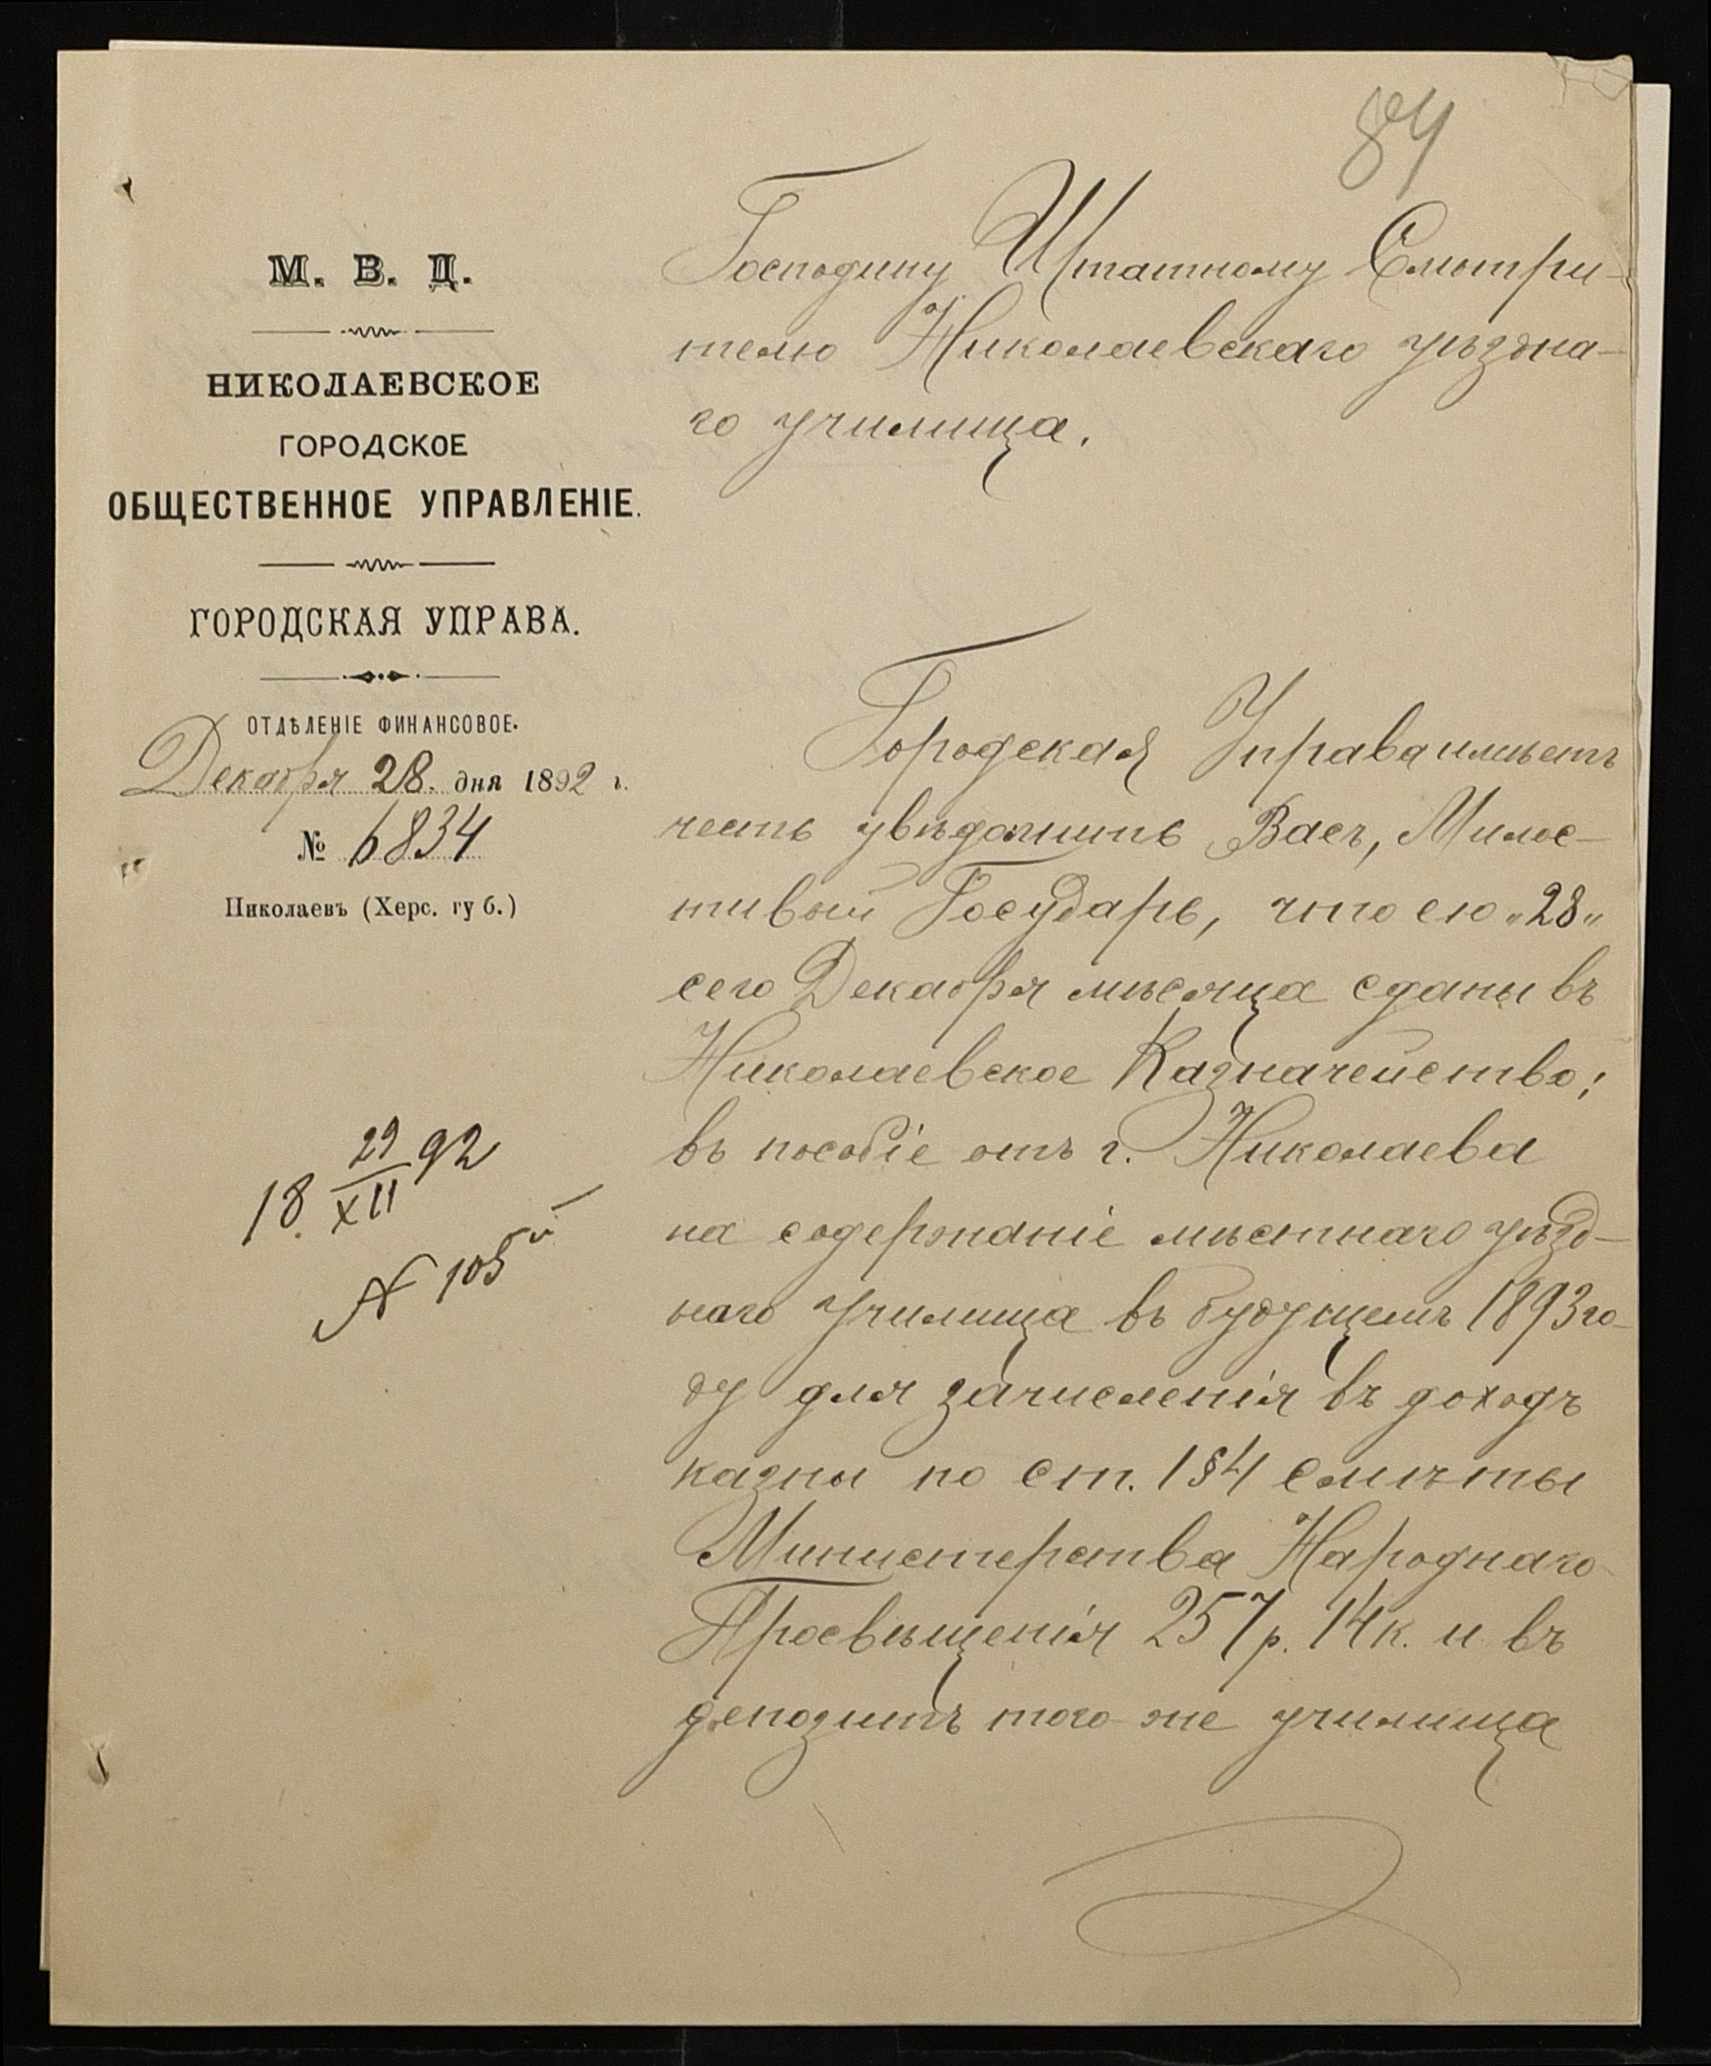 84
М. В. Д.
НИКОЛАЕВСКОЕ
ГОРОДСКОЕ
ОБЩЕСТВЕННОЕ УПРАВЛЕНІЕ.
ГОРОДСКАЯ УПРАВА.
ОТДѢЛЕНІЕ ФИНАНСОВОЕ.
Декабря 28. дня 1892 г.
№ 6834
Николаевъ (Херс. губ.)
18. 29/XII 92
N 105й
Господину Штатному Смотри-
телю Николаевскаго уѣздна-
го училища.
Городская Управа имѣетъ
честь увѣдомить Васъ, Милос-
тивый Государь, что ею „28„
сего Декабря мѣсяца сданы въ
Николаевское Казначейство:
въ пособіе отъ г. Николаева
на содержаніе мѣстнаго уѣзд-
наго училища въ будущемъ 1893 го-
ду для зачисленія въ доходъ
казны по ст. 1 § 4 смѣты
Министерства Народнаго
Просвѣщенія 257 р. 14 к. и въ
депозитъ того-же училища